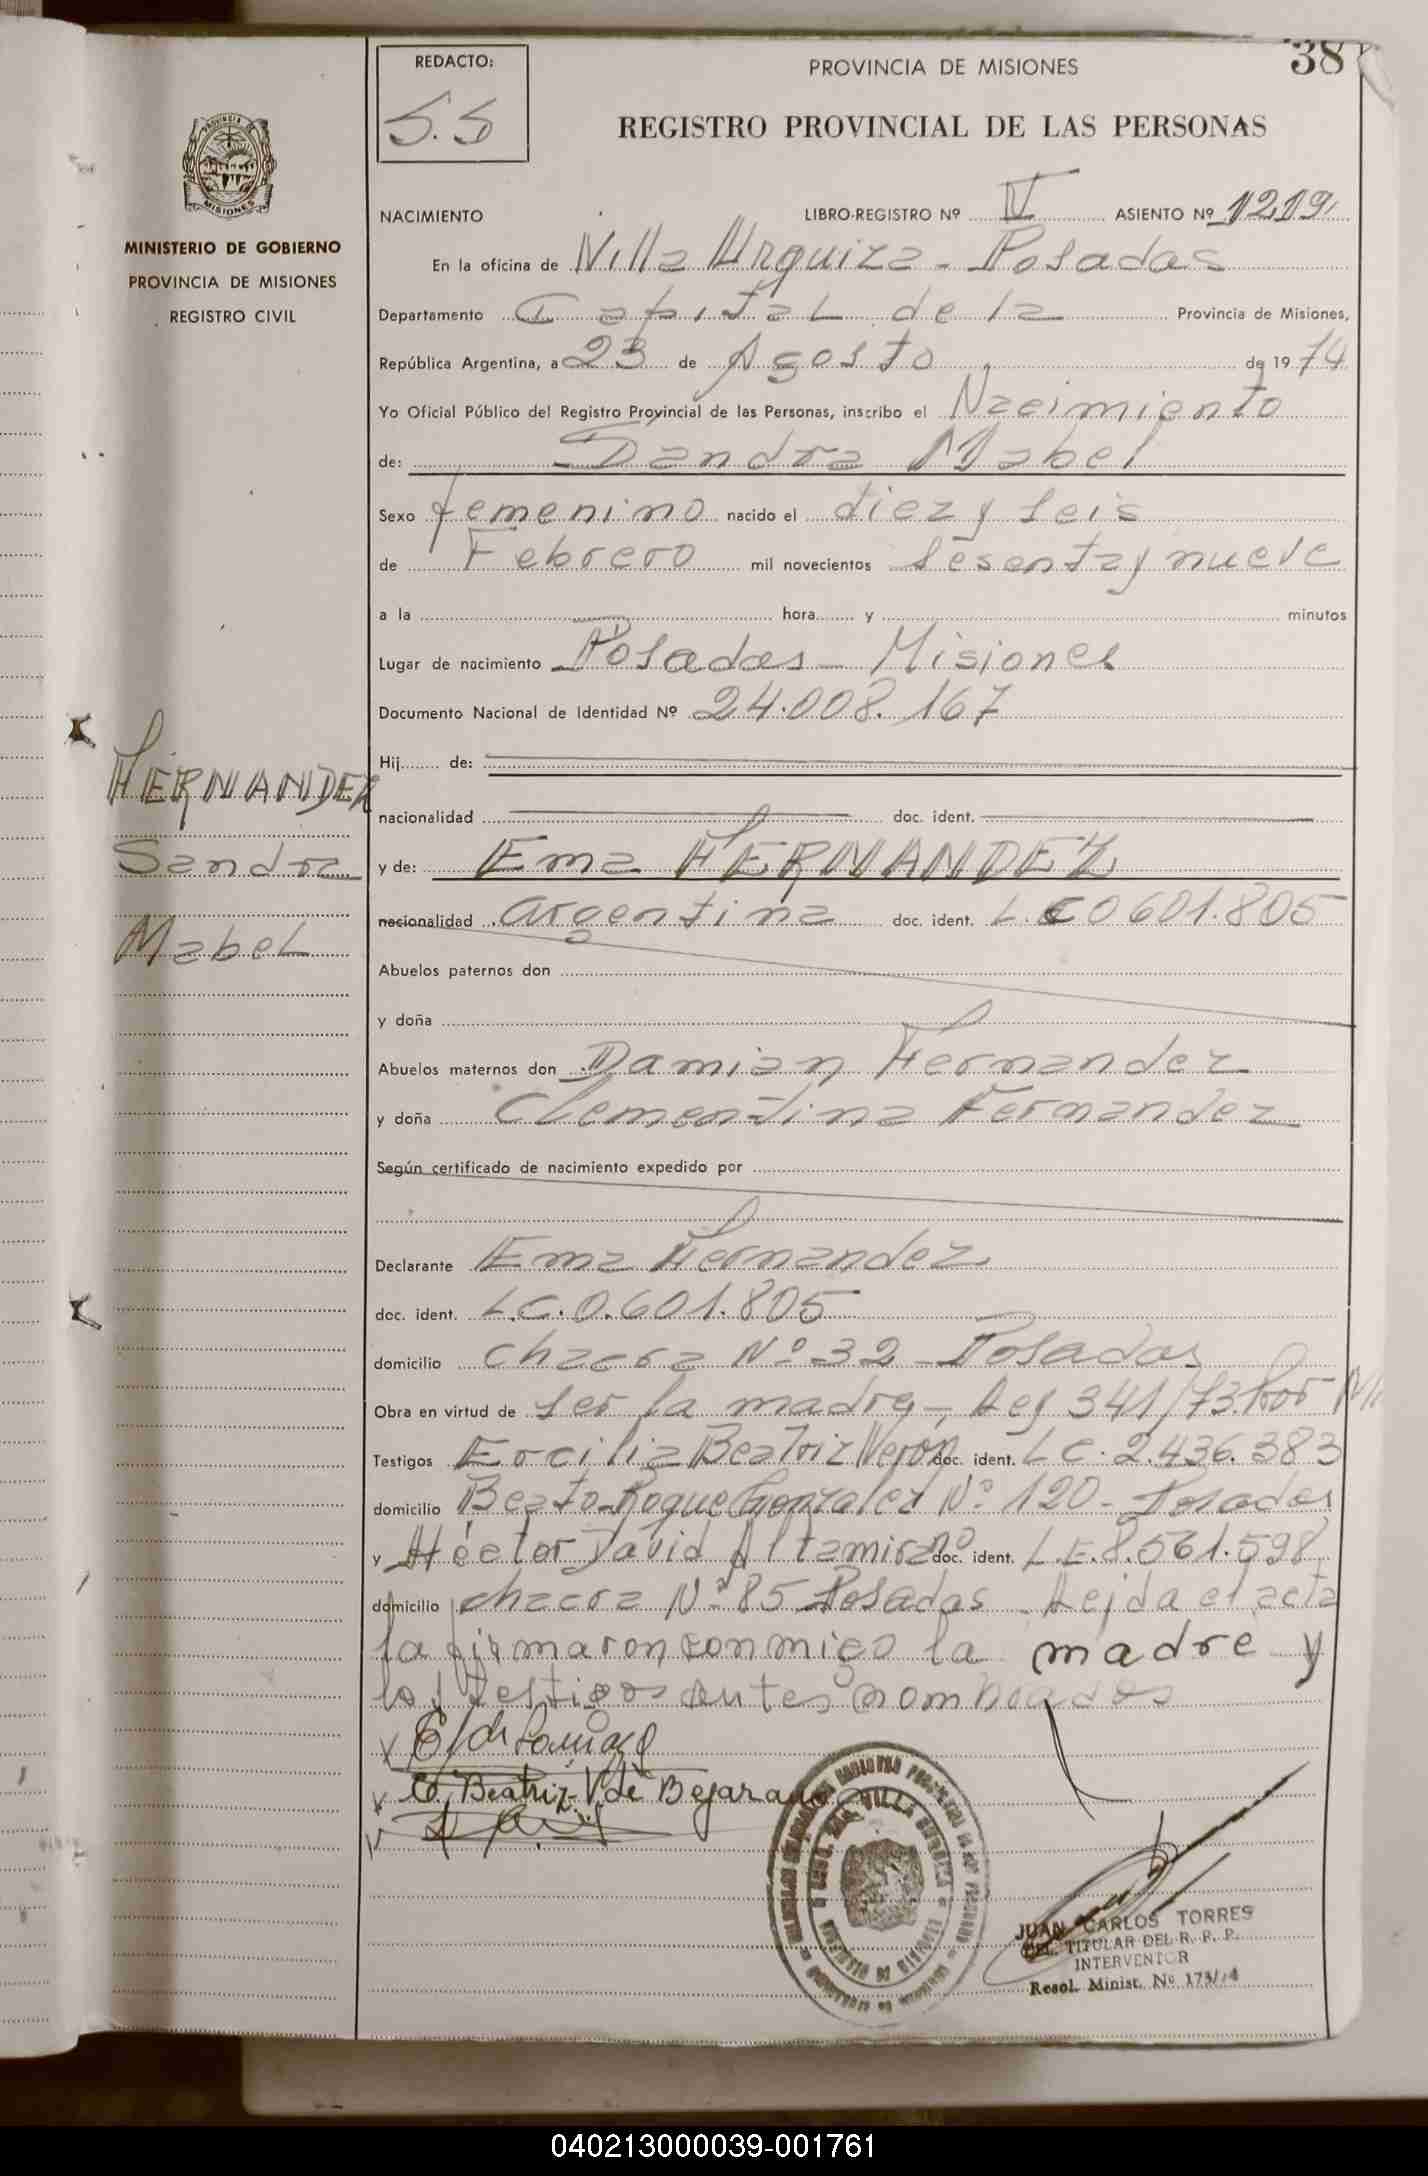 REDACTO:
S.S
PROVINCIA DE MISIONES
38
REGISTRO PROVINCIAL DE LAS PERSONAS
PROVINCIA DE
MISIONES
MINISTERIO DE GOBIERNO
PROVINCIA DE MISIONES
REGISTRO CIVIL
HERNANDEZ
Sandra
Mabel
NACIMIENTO LIBRO-REGISTRO Nº IV ASIENTO Nº 1219
En la oficina de Villa Urquiza - Posadas
Departamento Capital de la Provincia de Misiones,
República Argentina, a 23 de Agosto de 1974
Yo Oficial Público del Registro Provincial de las Personas, inscribo el Nacimiento
de: Sandra Mabel
Sexo femenino nacido el diez y seis
de Febrero mil novecientos sesenta y nueve
a la hora y minutos
Lugar de nacimiento Posadas - Misiones
Documento Nacional de Identidad Nº 24.008.167
Hij de:
nacionalidad doc. ident.
y de: Ema HERNANDEZ
nacionalidad argentina doc. ident. L.C 0601.805
Abuelos paternos don
y doña
Abuelos maternos don Damian Hernandez
y doña Clementina Fernandez
Según certificado de nacimiento expedido por
Declarante Ema Hernandez
doc. ident. L.C.0.601.805
domicilio chacra Nº 32 - Posadas
Obra en virtud de ser la madre -, Ley 341/73. Por
Testigos Ercilia Beatriz Veron doc. ident. LC. 2.436.383
domicilio Beato Roque Gonzalez Nº 120 - Posadas
y Héctor David Altamirano doc. ident. L.E.8.561.598
domicilio chacra Nº 85 Posadas - Leida el acta
la firmaron conmigo la madre y
los testigos antes nombrados
E. Beatriz V. de Bejarano
VILLA URQUIZA
JUAN CARLOS TORRES
DEL. TITULAR DEL R. P. P.
INTERVENTOR
Resol. Minist. Nº 173/74
040213000039-001761